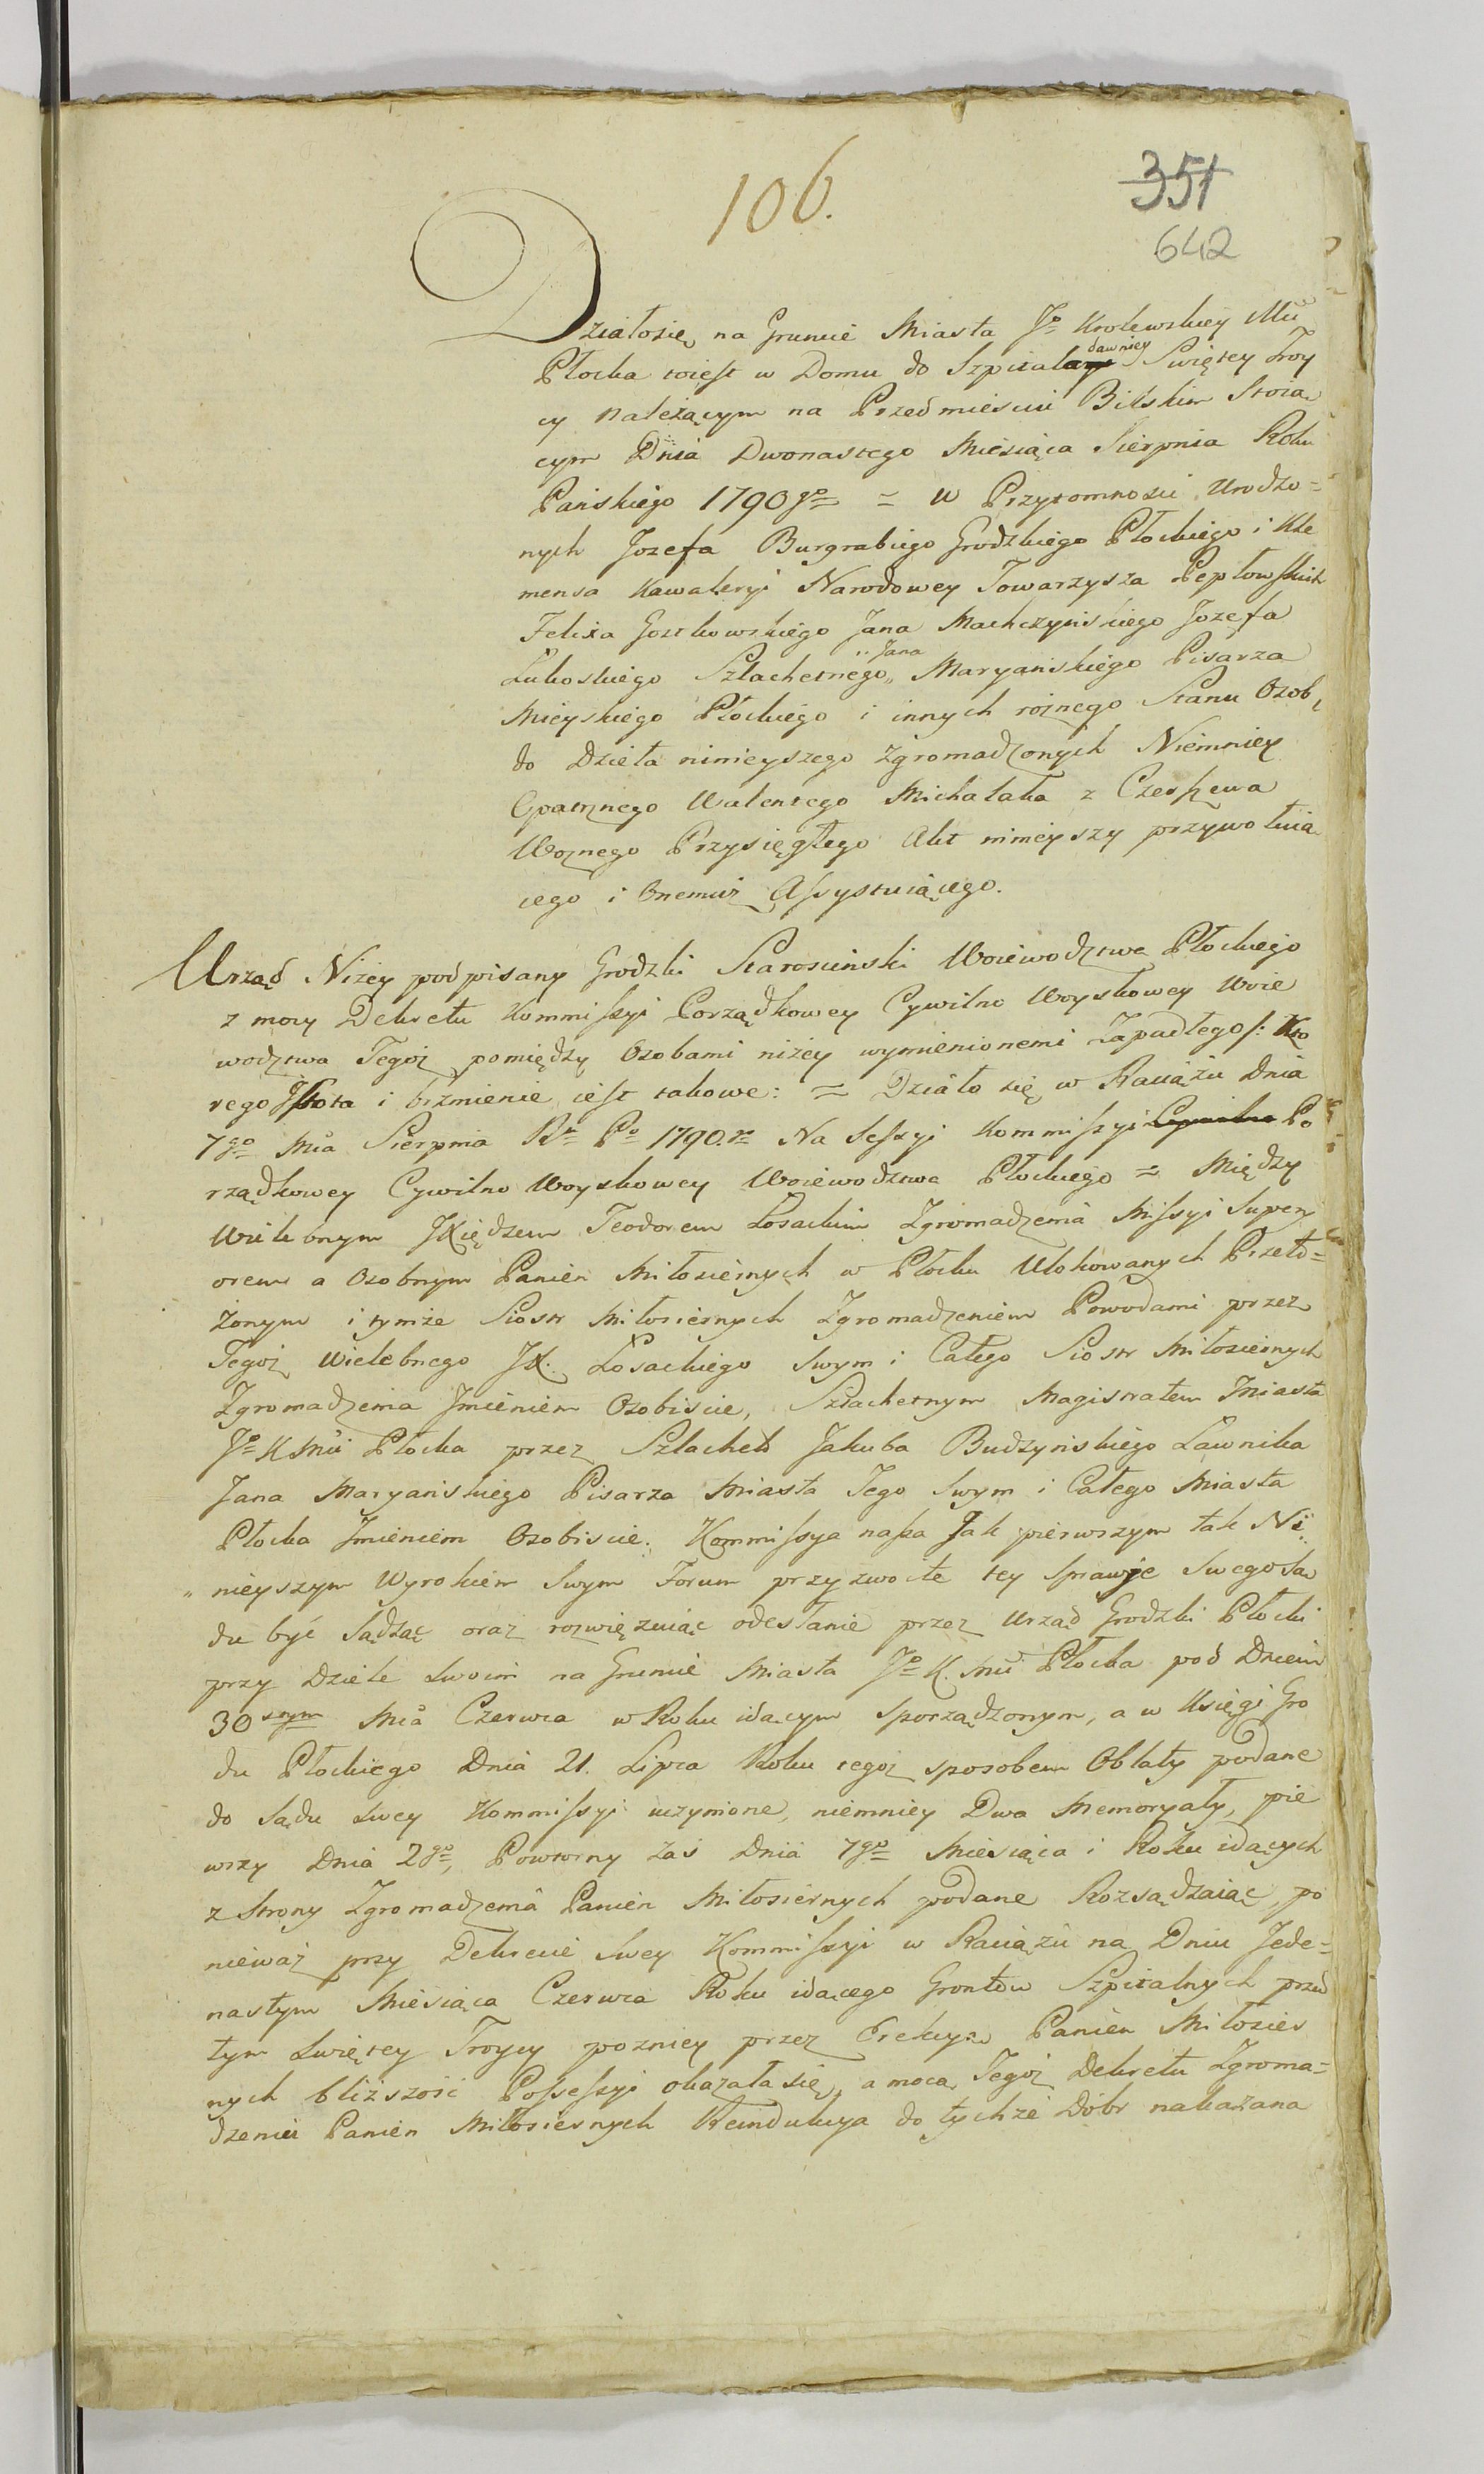 106.
351
642
Działosię na Gruncie Miasta Jo Krolewskiey Mci
Płocka toiest w Domu do Szpitala dawniey Swiętey Troy
cy należącym na Przedmiesciu Bilskim Stoią
cym Dnia Dwonastego Miesiąca Sierpnia Roku
Pańskiego 1790go = w Przytomnosci Urodzo=
nych Jozefa Burgrabiego Grodzkiego Płockiego i Kle
mensa Kawaleryi Narodowey Towarzysza Pepłowskich
Felixa Gostkowskiego Jana Machczyńskiego Jozefa
Lukoskiego Szlachetnego „Jana Maryańskiego Pisarza
Mieyskiego Płockiego i innych rożnego Stanu Osob,
do Dzieła ninieyszego zgromadzonych Niemniey
Opatrznego Walentego Michalaka z Czerszewa
Woznego Przysięgłego Akt ninieyszy przywołuią
cego i Onemuż Assystuiącego.
Urząd Niżey podpisany Grodzki Starosciński Woiewodztwa Płockiego
z mocy Dekretu Kommissyi Porządkowey Cywilno Woyskowey Woie
wodztwa Tegoż pomiędzy Osobami niżey wymienionemi zapadłego /: Kto
rego Istota i brzmienie iest takowe: = Działo się w Raciążu Dnia
7go Mca Sierpnia Rku Po 1790. ro Na Sessyi Kommissyi Cywilno Po
rządkowey Cywilno Woyskowey Woiewodztwa Płockiego = Między
Wielebnym JXiędzem Teodorem Łosackim Zgromadzenia Missyi Supery
orem a Osobnym Panien Miłosiernych w Płocku Ulokowanych Przeło=
żonym i tymże Siostr Miłosiernych Zgromadzeniem Powodami przez
Tegoż Wielebnego JX. Łosackiego Swym i Całego Siostr Miłosiernych
Zgromadzenia Jmieniem Osobiscie, Szlachetnym Magistratem Miasta
Jo K Mci Płocka przez Szlachet: Jakuba Budzyńskiego Ławnika
Jana Maryańskiego Pisarza Miasta Tego Swym i Całego Miasta
Płocka Jmieniem Osobiscie. Kommissya nasza Jak pierwszym tak Ni„
„nieyszym Wyrokiem Swym Forum przyzwoite tey sprawie Swego Są
du być Sądząc oraz rozwięzuiąc odesłanie przez Urząd Grodzki Płocki
przy Dziele Swoim na Gruncie Miasta Jo K. Mci Płocka pod Dniem
30stym Mca Czerwca w Roku idącym sporządzonym, a w Księgi Gro
du Płockiego Dnia 21. Lipca Roku tegoż sposobem Oblaty podane
do Sądu Swey Kommissyi uczynione, niemniey Dwa Memoryały, pie
wszy Dnia 2go, Powtorny zaś Dnia 7go Miesiąca i Roku idących
z Strony Zgromadzenia Panien Miłosiernych podane Rozsądzaiąc, po
nieważ przy Dekrecie Swey Kommissyi w Raciążu na Dniu Jede=
nastym Miesiąca Czerwca Roku idącego Grontow Szpitalnych przed
tym Swiętey Troycy pozniey przez Erekcyą Panien Miłosier
nych bliższość Possessyi okazała się, a mocą Tegoż Dekretu Zgroma=
dzeniu Panien Miłosiernych Reindukcya do tychże Dóbr nakazana